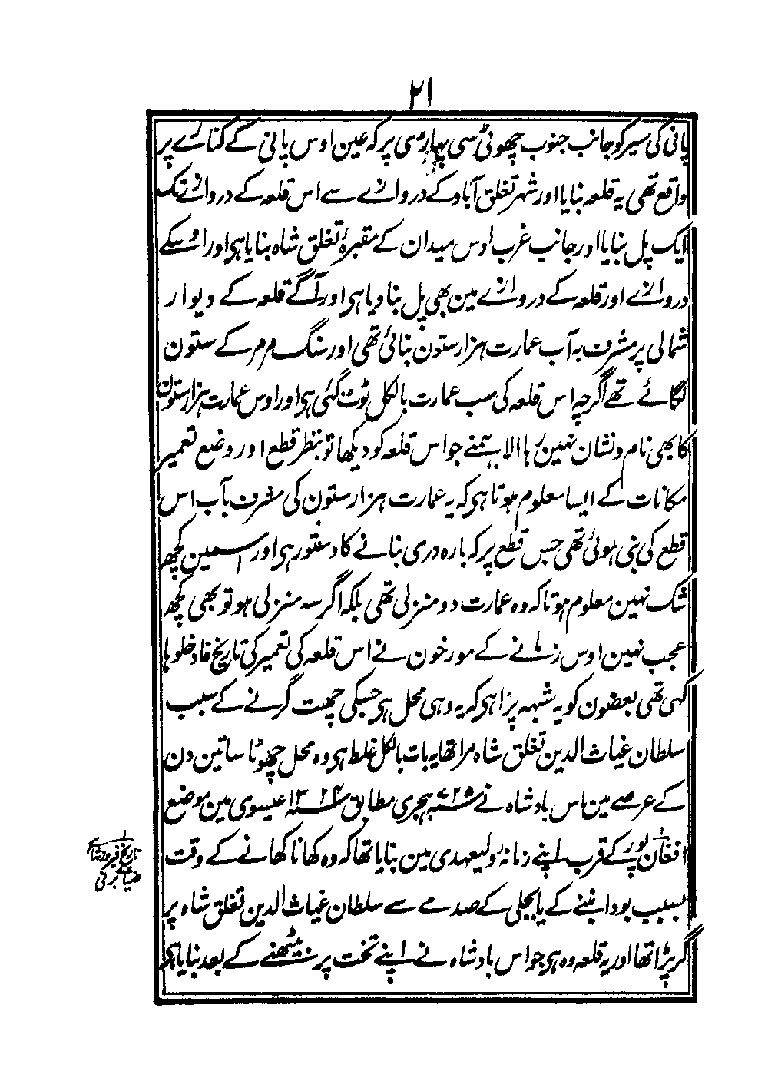 ٢١
پانی کی سیر کو جانب جنوب چھوٹی سی پہاڑی پر کہ عین اوس پانی کے کنارے پر
واقع تھی یہ قلعہ بنایا اور شہر تغلق آباد کے دروازے سے اس قلعہ کے دروازے تک
ایک پل بنایا اور جانب غرب اوس میدان کے مقبرۂ تغلق شاہ بنایا ہی اور اوسکے
دروازے اور قلعہ کے دروازے مین بھی پل بنا دیا ہی اور آگے قلعہ کے دیوار
شمالی پر مشرف بہ آب عمارت ہزار ستون بنائی تھی اور سنگ مرمر کے ستون
لگائے تھے اگرچہ اس قلعہ کی سب عمارت بالکل ٹوٹ گئی ہی اور اوس عمارت ہزار ستون
کا بھی نام و نشان نہین رہا الا ہمنے جو اس قلعہ کو دیکھا تو بنظر قطع اور وضع تعمیر
مکانات کے ایسا معلوم ہوتا ہی کہ یہ عمارت ہزار ستون کی مشرف بآب اس
قطع کی بنی ہوئی تھی جس قطع پر کہ بارہ دری بنانے کا دستور ہی اور اسمین کچھ
شک نہین معلوم ہوتا کہ وہ عمارت دو منزلی تھی بلکہ اگر سہ منزلی ہو تو بھی کچھ
عجب نہین اوس زمانے کے مورخون نے اس قلعہ کی تعمیر کی تاریخ فادخلوہا
کہی تھی بعضون کو یہ شبہہ پڑا ہی کہ یہ وہی محل ہی جسکی چھت گرنے کے سبب
سلطان غیاث الدین تغلق شاہ مرا تھا یہ بات بالکل غلط ہی وہ محل چھوٹا سا تین دن
کے عرصے مین اس بادشاہ نے ۷۲۵ ہجری مطابق ۱۳۲۴ عیسوی مین موضع
افغان پور کے قریب اپنے زمانۂ ولیعہدی مین بنایا تھا کہ وہ کھانا کھانے کے وقت
بسبب بودا بننے کے یا بجلی کے صدمے سے سلطان غیاث الدین تغلق شاہ پر
گر پڑا تھا اور یہ قلعہ وہ ہی جو اس بادشاہ نے اپنے تخت پر بیٹھنے کے بعد بنایا ہی
۱ تاریخ فیروز شاہی
ضیا برنی